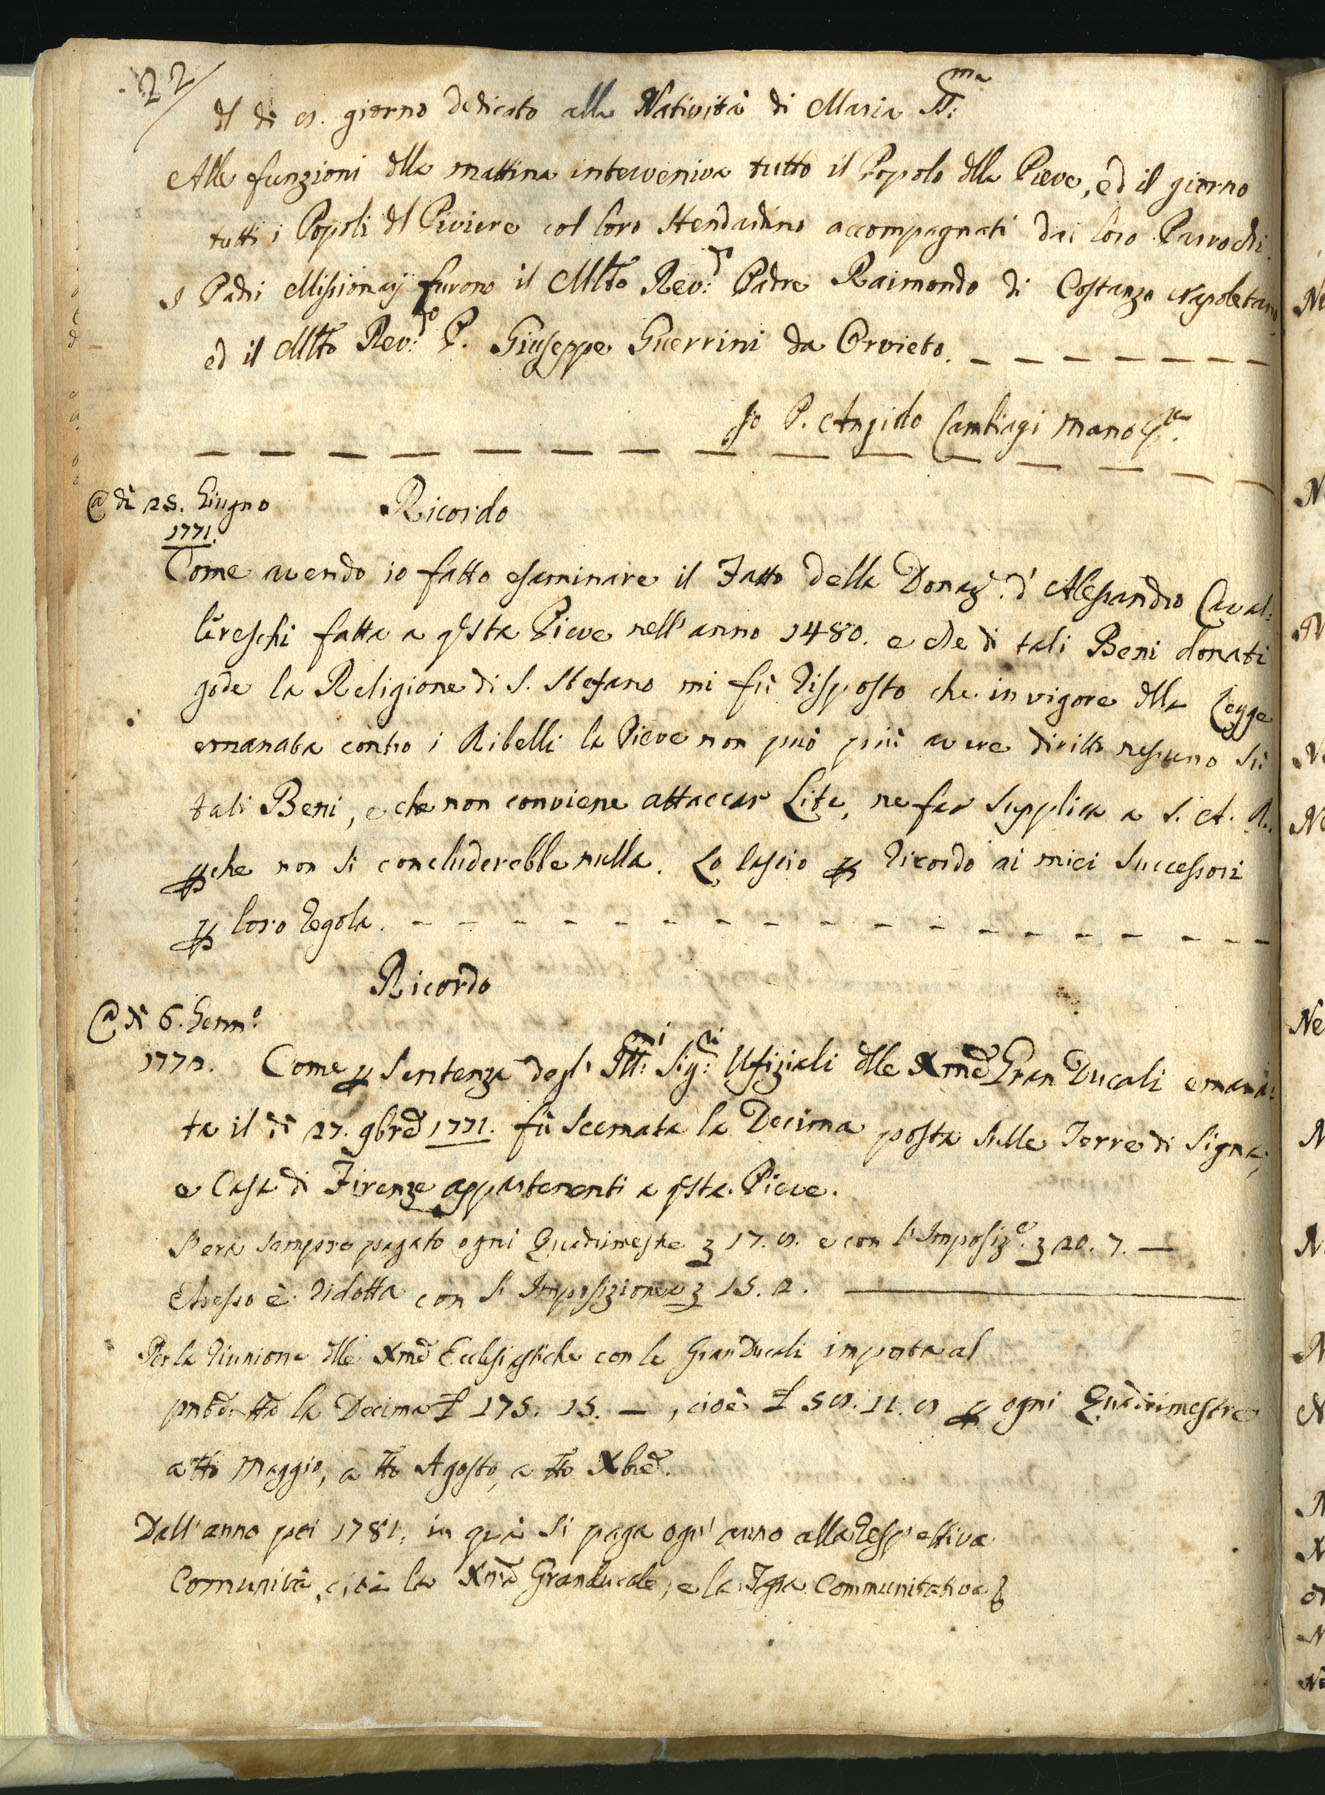 22/
Il dì 8. giorno dedicato alla Natività di Maria SS:ma
Alle funzioni dlla mattina interveniva tutto il Popolo dlla Pieve, ed il giorno
tutti i Popoli dl Piviere col loro Stendardino accompagnati dai loro Parrochi.
I Padri Missionarj furono il Mlto Rev:do Padre Raimondo di Costanzo Napoletano
ed il Mlto Rev:do P. Giuseppe Guerrini da Orvieto. — — — — — — —
Io P. Cambiagi mano ppa.
— — — — — — — — — — — — — — — —
@ dì 25. Giugno
1771.
Ricordo
Come avendo io fatto esaminare il Fatto della Donaz.e d'Alessandro Caval:
lereschi fatta a qsta Pieve nell'anno 1480. e che di tali Beni donati
gode la Religione di S. Stefano mi fù risposto che in vigore dlla Legge
emanata contro i Ribelli la Pieve non può più avere diritto nessuno sù
tali Beni, e che non conviene attaccar Lite, ne far supplica a S. A. R.
pche non si concluderebbe nulla. Lo lascio p ricordo ai miei Successori
p loro regola. - - - - - - - - - - - - - - - -
Ricordo
@ dì 6. Genn:o
1772. Come p sentenza degl' Ill:mi Sig:ri Ufiziali dlle Xme Gran Ducali emana:
ta il dì 27. 9bre 1771. fù scemata la Decima posta sulle Terre di Signa,
e Casa di Firenze appartenenti a qsta Pieve.
S'era sempre pagato ogni Quadrimestre 17. 8. e con l'Imposiz:e 20. 7. —
Adesso è ridotta con l'Imposizione a 15. 2. ———
Per la riunione dlle Xme Ecclesiastiche con le GranDucali importa al
la Decima £ 175. 15. —, cioè £ 58. 11. 8 p ogni Quadrimestre
a tto Maggio, a tto Agosto, a tto Xbre.
Dall'anno poi 1781. in quà si paga ogn'anno alla respettiva
Comunità, cioè la Xma Granducale, e la Tassa Communitativa